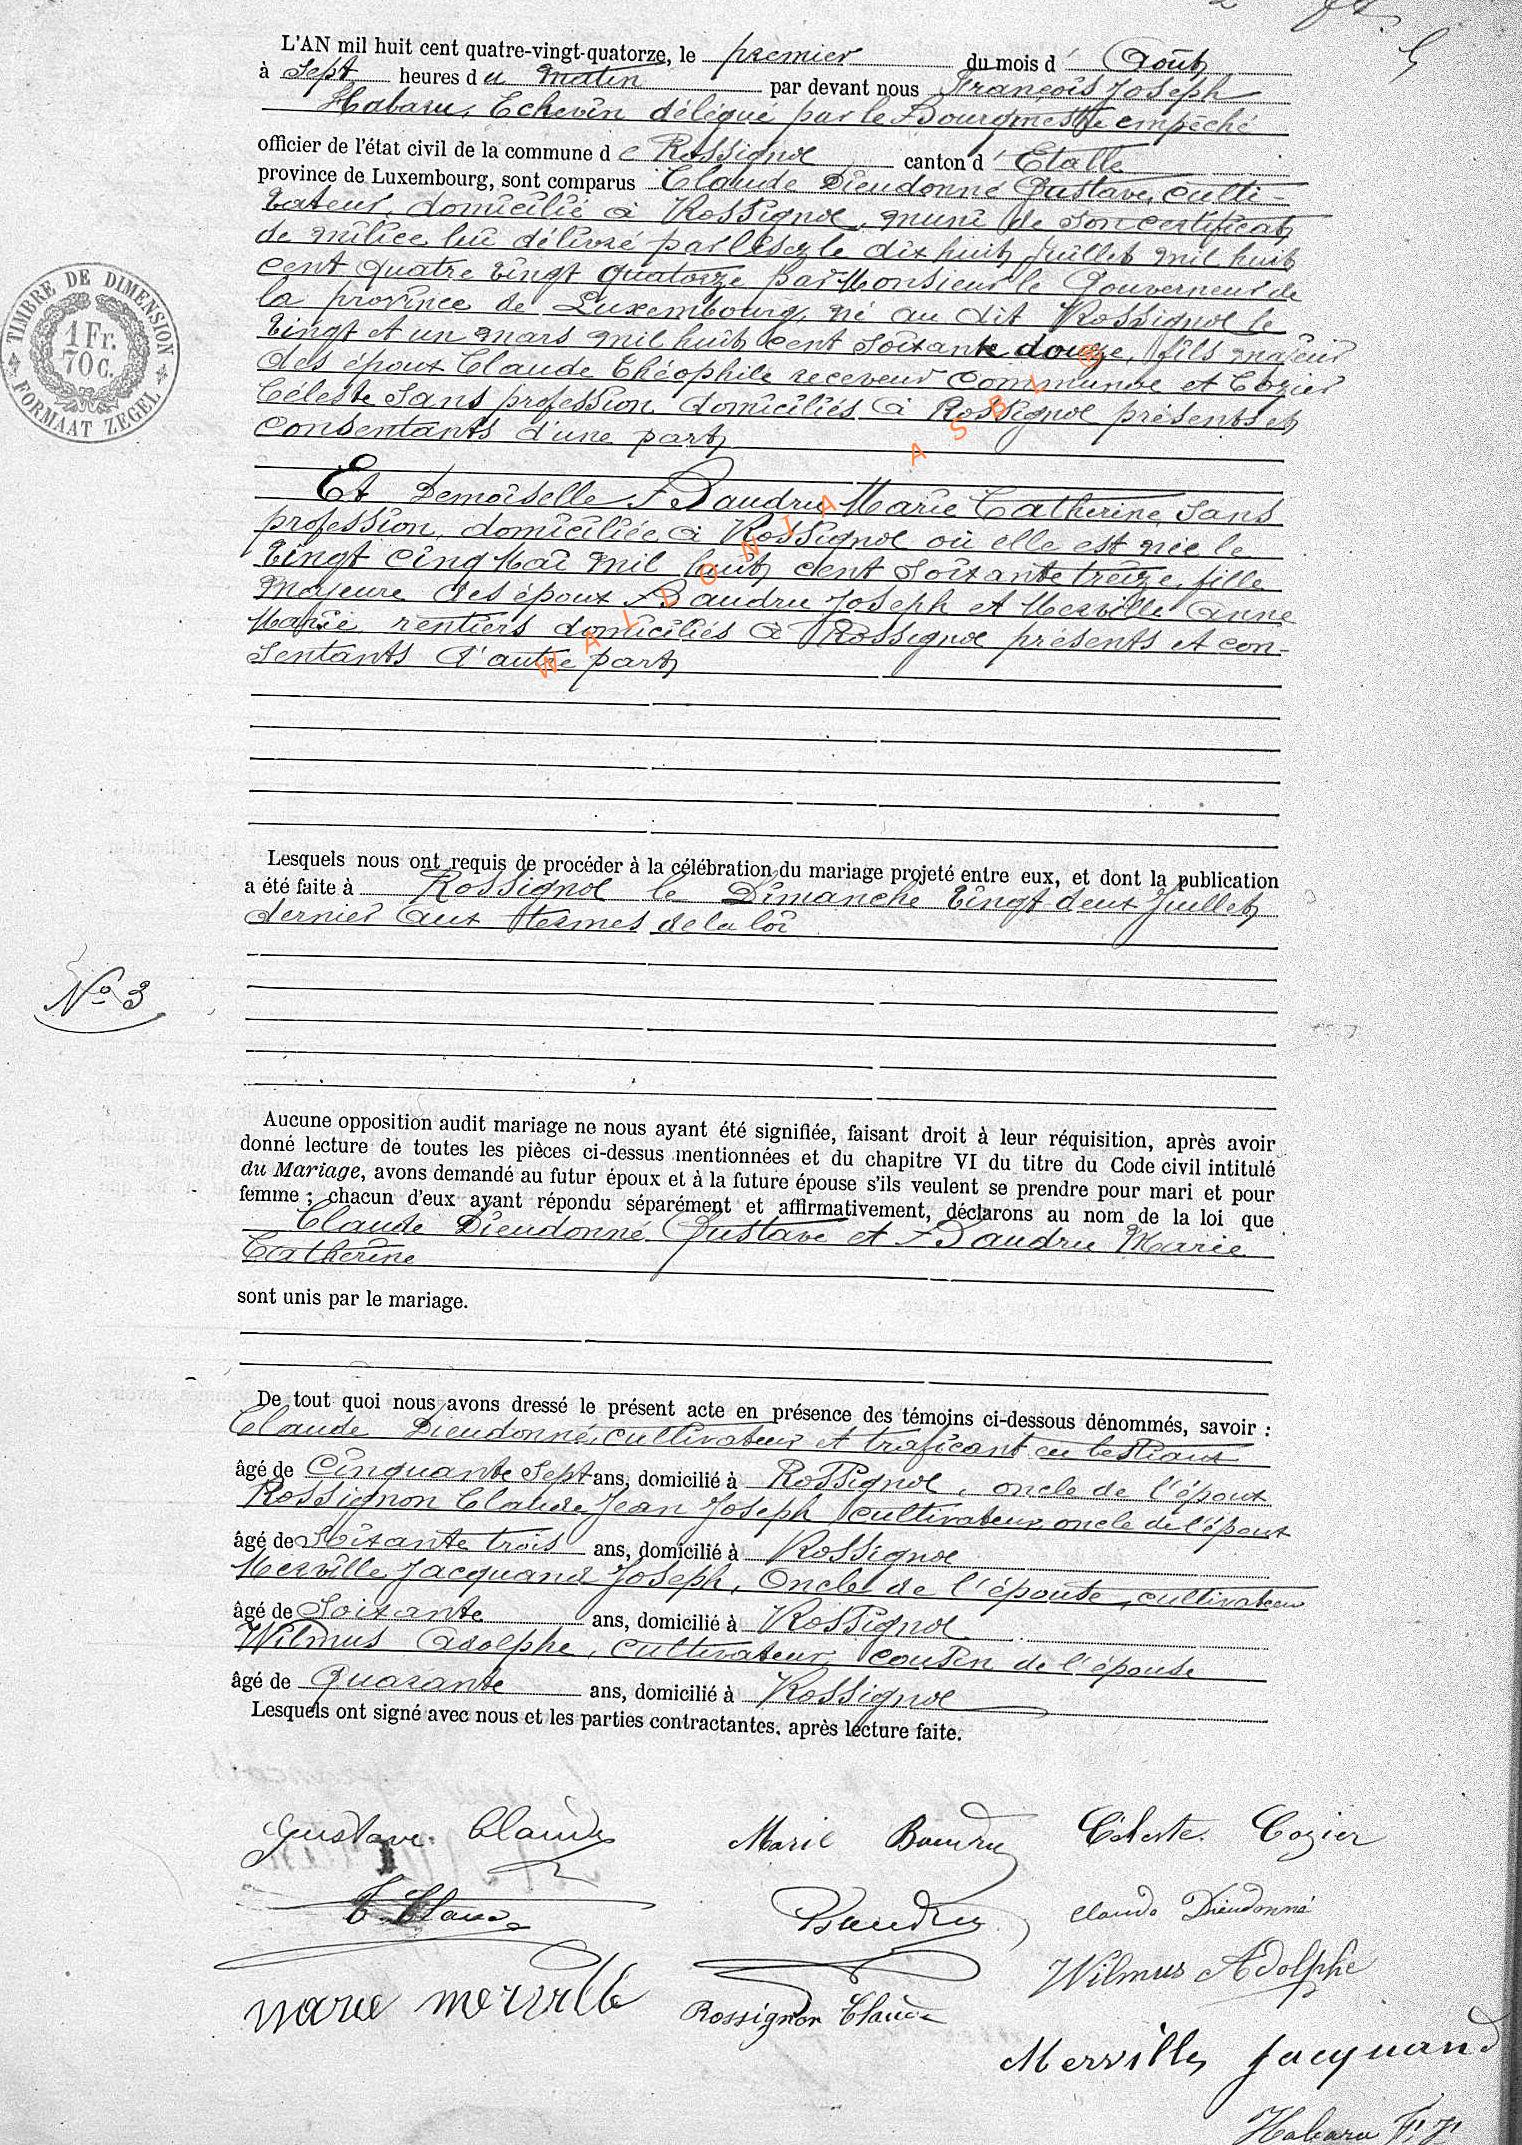 L'AN mil huit cent quatre-vingt-quatorze, le premier du mois d' Août
à sept heures du matin par devant nous François Joseph
Habaru, Echevin délégué par le Bourgmestre empêché
officier de l'état civil de la commune de Rossignol canton d' Etalle
province de Luxembourg, sont comparus Claude Dieudonné Gustave, culti-
vateur, domicilié à Rossignol, muni de son certificat
de milice lui délivré par le dix huit Juillet mil huit
cent quatre vingt quatorze par Monsieur le Gouverneur de
la province de Luxembourg, né au dit Rossignol le
vingt et un mars mil huit cent soixante douze, fils majeur
des époux Claude Théophile receveur communal et Cozier
Céleste sans profession domiciliés à Rossignol présents et
consentants d'une part
Et Demoiselle Baudru Marie Catherine, sans
profession, domiciliée à Rossignol où elle est née le
vingt cinq Mai mil huit cent soixante treize, fille
majeure des époux Baudru Joseph et Merville Anne
Marie rentiers domiciliés à Rossignol présents et con-
sentants d'autre part
Lesquels nous ont requis de procéder à la célébration du mariage projeté entre eux, et dont la publication
a été faite à Rossignol le Dimanche vingt deux Juillet
dernier aux termes de la loi
No 3
Aucune opposition audit mariage ne nous ayant été signifiée, faisant droit à leur réquisition, après avoir
donné lecture de toutes les pièces ci-dessus mentionnées et du chapitre VI du titre du Code civil intitulé
du Mariage, avons demandé au futur époux et à la future épouse s'ils veulent se prendre pour mari et pour
femme ; chacun d'eux ayant répondu séparément et affirmativement, déclarons au nom de la loi que
Claude Dieudonné Gustave et Baudru Marie
Catherine
sont unis par le mariage.
De tout quoi nous avons dressé le présent acte en présence des témoins ci-dessous dénommés, savoir :
Claude Dieudonné, cultivateur et traficant en bestiaux
âgé de Cinquante sept ans, domicilié à Rossignol, oncle de l'époux
Rossignon Claude Jean Joseph cultivateur, oncle de l'époux
âgé de Soixante trois ans, domicilié à Rossignol
Merville Jacquand Joseph, Oncle de l'épouse, cultivateur
âgé de Soixante ans, domicilié à Rossignol
Wilmus Adolphe, cultivateur, cousin de l'épouse
âgé de Quarante ans, domicilié à Rossignol
Lesquels ont signé avec nous et les parties contractantes, après lecture faite.
Gustave Claude Marie Baudru Céleste Cozier
T. Claude Baudru Claude Dieudonné
Wilmus Adolphe
Marie Merville Rossignon Claude
Merville Jacquand
Habaru F. J.
TIMBRE DE DIMENSION
1 Fr.
70 C.
FORMAAT ZEGEL
WALLONIA ASBL ®